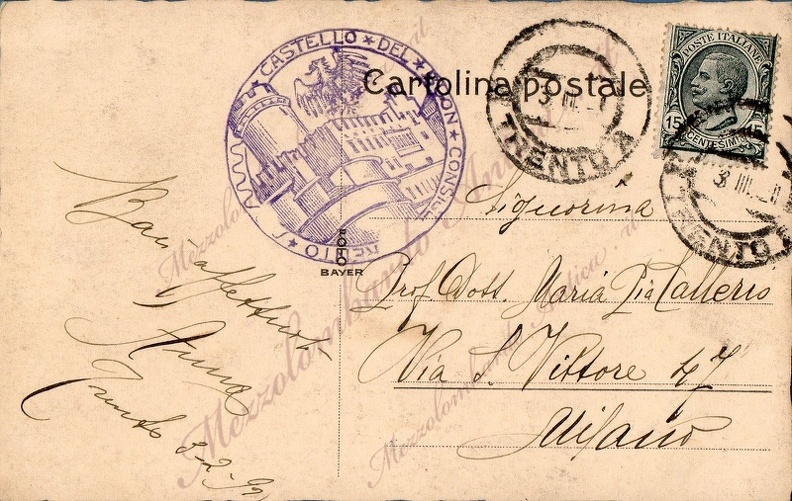 CASTELLO ★ DEL ★ BUON ★ CONSIGLIO ★ TRENTO
Cartolina postale
POSTE ITALIANE
15
CENTESIMI
3 III
TRENTO
3 III
TRENTO
FOTO
BAYER
Signorina
Prof. Dott. Maria Pia
Via S. Vittore 47
Milano
Baci affettuosi
Anna
Trento
Mezzolombardo Antica.it
Mezzolombardo Antica.it
Mezzolombardo Antica.it